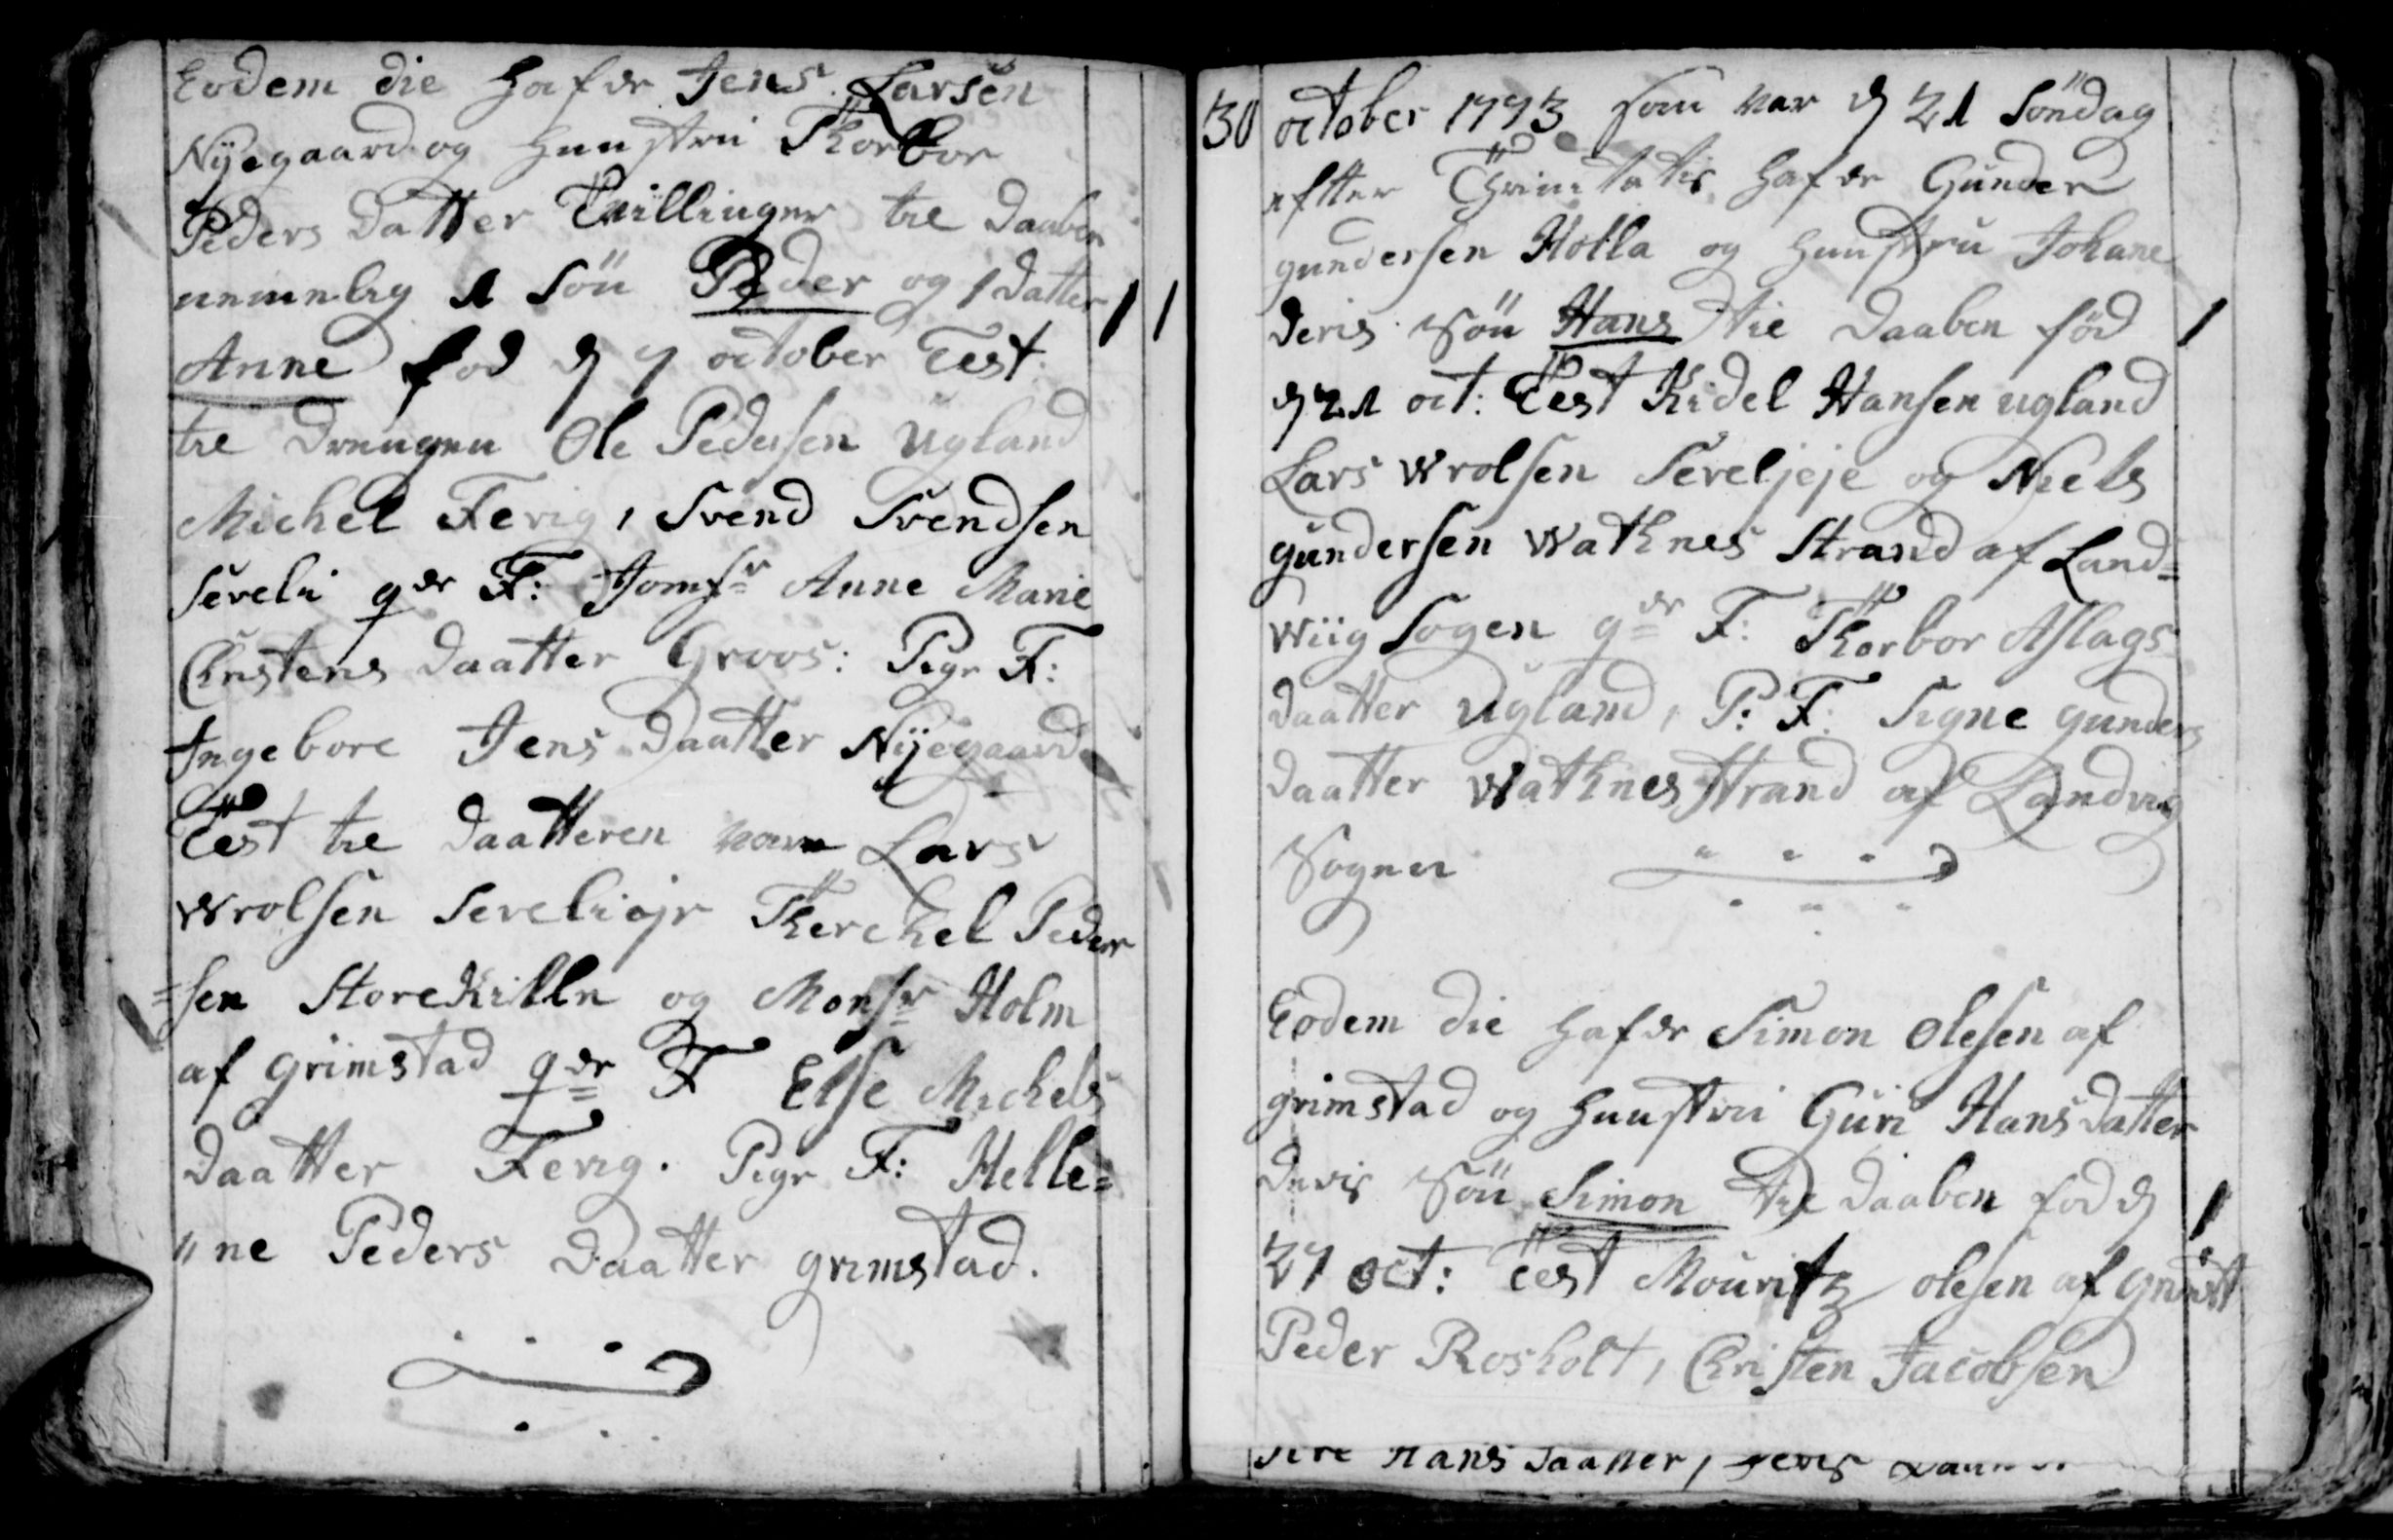 Eodem die Hafde Jens Larsen
Nÿegaard og Hunstrü Thorbor
Peders Datter Tvillinger til Daaben
nemmelig 1 Sön Peder og 1 Datter
Anne fød d 7 october Test
til Drengen Ole Pedersen Ugland
Michel Fevig, Svend Svendsen
Seveli gde F: Jomfr Anne Marie
Christens Daatter Groos: Pige F:
Ingebore Jens Daatter Nÿegaard
Test til Daatteren vare Lars
Wrolsen Sevelieje Therchel Peder
=sen StoreKille og Monsr Holm
af Grimstad gde F Else Michels
Daatter Fevig. Pige F: Helle=
"ne Peders Daatter grimstad.
30 october 1793 som var d 21 Söndag
efter Thrinitatis Hafde Gunder
gundersen Holla og Hunstru Johane
Deris Sön Hans til Daaben fød
d 21 oct: Test Kidel Hansen ugland
Lars Wrolsen Seveljeje og Niels
gundersen Wathnes Strand af Land=
Wiig Sogen gde F: Thorbor Aslags
Daatter Ugland, P: F: Signe gunders
Daatter Wathnes Strand af Landvig
Sognen
Eodem die Hafde Simon Olesen af
grimstad og Hunstrü Guri Hans Datter
Deris Sön Simon til Daaben fød d
27 oct: Test Mouritz olesen af
Peder Rosholt, Christen Jacobsen
Hans Daatter,